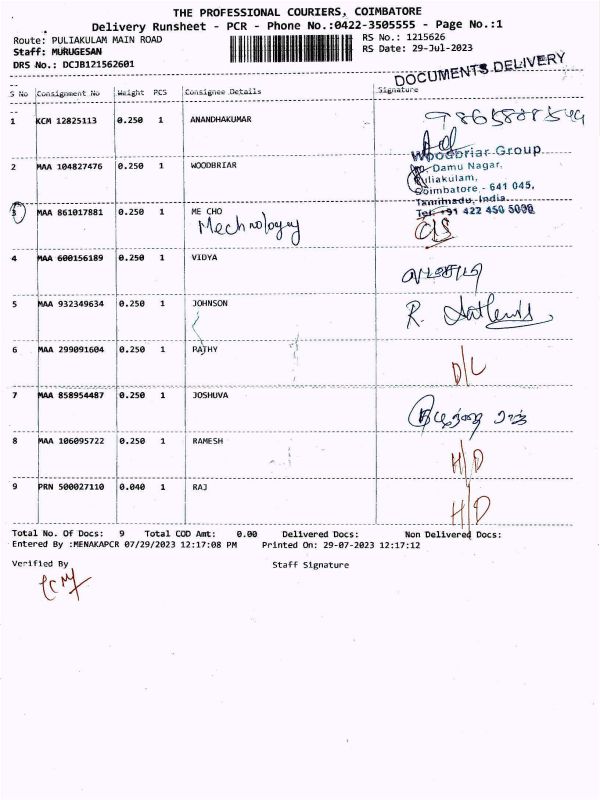 THE PROFESSIONAL COURIERS, COIMBATORE
Delivery Runsheet - PCR - Phone No.:0422-3505555 - Page No.:1
Route: PULIAKULAM MAIN ROAD RS No.: 1215626
Staff: MURUGESAN RS Date: 29-Jul-2023
DRS No.: DCJB121562601
DOCUMENTS DELIVERY
S No Consignment No Weight PCS Consignee Details Signature
1 KCM 12825113 0.250 1 ANANDHAKUMAR
Woodbriar Group
2 MAA 104827476 0.250 1 WOODBRIAR
Damu Nagar,
Puliakulam,
Coimbatore - 641 045,
Tamilnadu, India.
3 MAA 861017881 0.250 1 ME CHO Tel: +91 422 450 5000
Mechnology
4 MAA 600156189 0.250 1 VIDYA
5 MAA 932349634 0.250 1 JOHNSON
R.
6 MAA 299091604 0.250 1 PATHY
D/L
7 MAA 858954487 0.250 1 JOSHUVA
8 MAA 106095722 0.250 1 RAMESH
H/D
9 PRN 500027110 0.040 1 RAJ
H/D
Total No. Of Docs: 9 Total COD Amt: 0.00 Delivered Docs: Non Delivered Docs:
Entered By :MENAKAPCR 07/29/2023 12:17:08 PM Printed On: 29-07-2023 12:17:12
Verified By Staff Signature